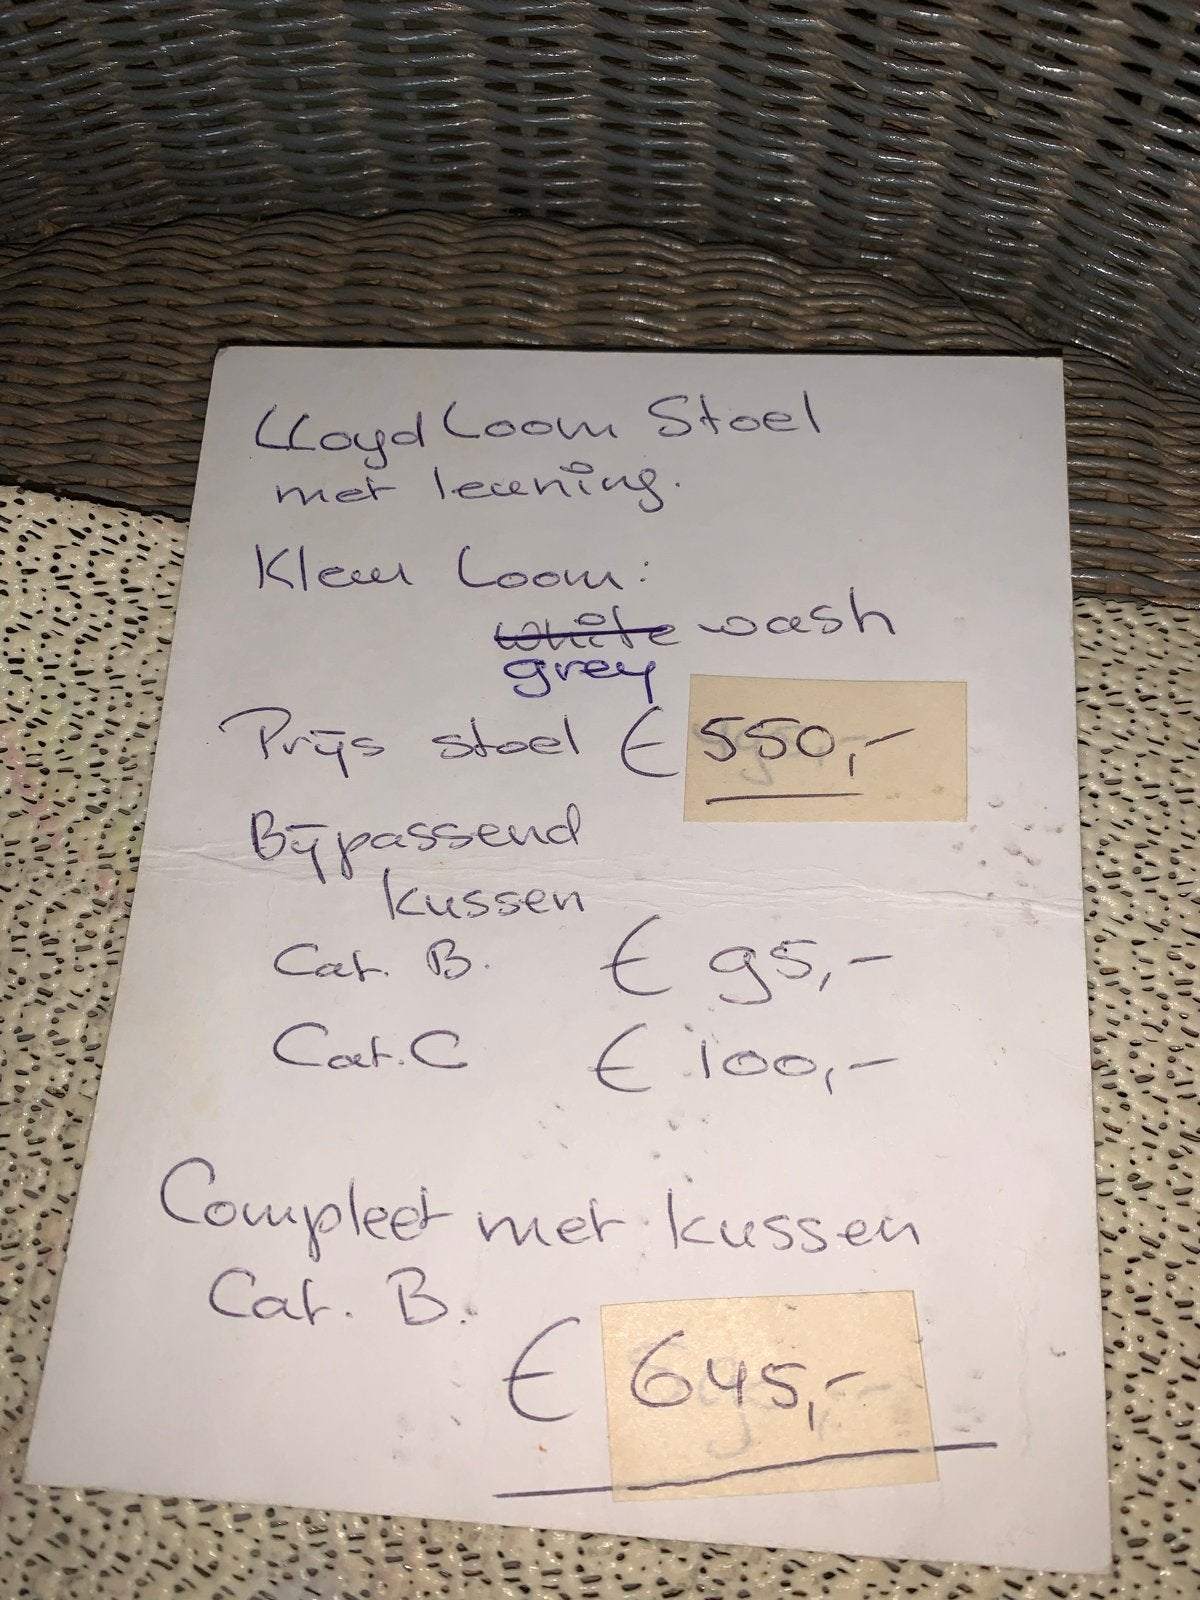 Lloyd Loom Stoel
met leuning.
Kleur Loom:
white wash
grey
Prijs stoel € 550,-
Bijpassend
kussen
Cat. B. € 95,-
Cat. C € 100,-
Compleet met kussen
Cat. B.
€ 645,-